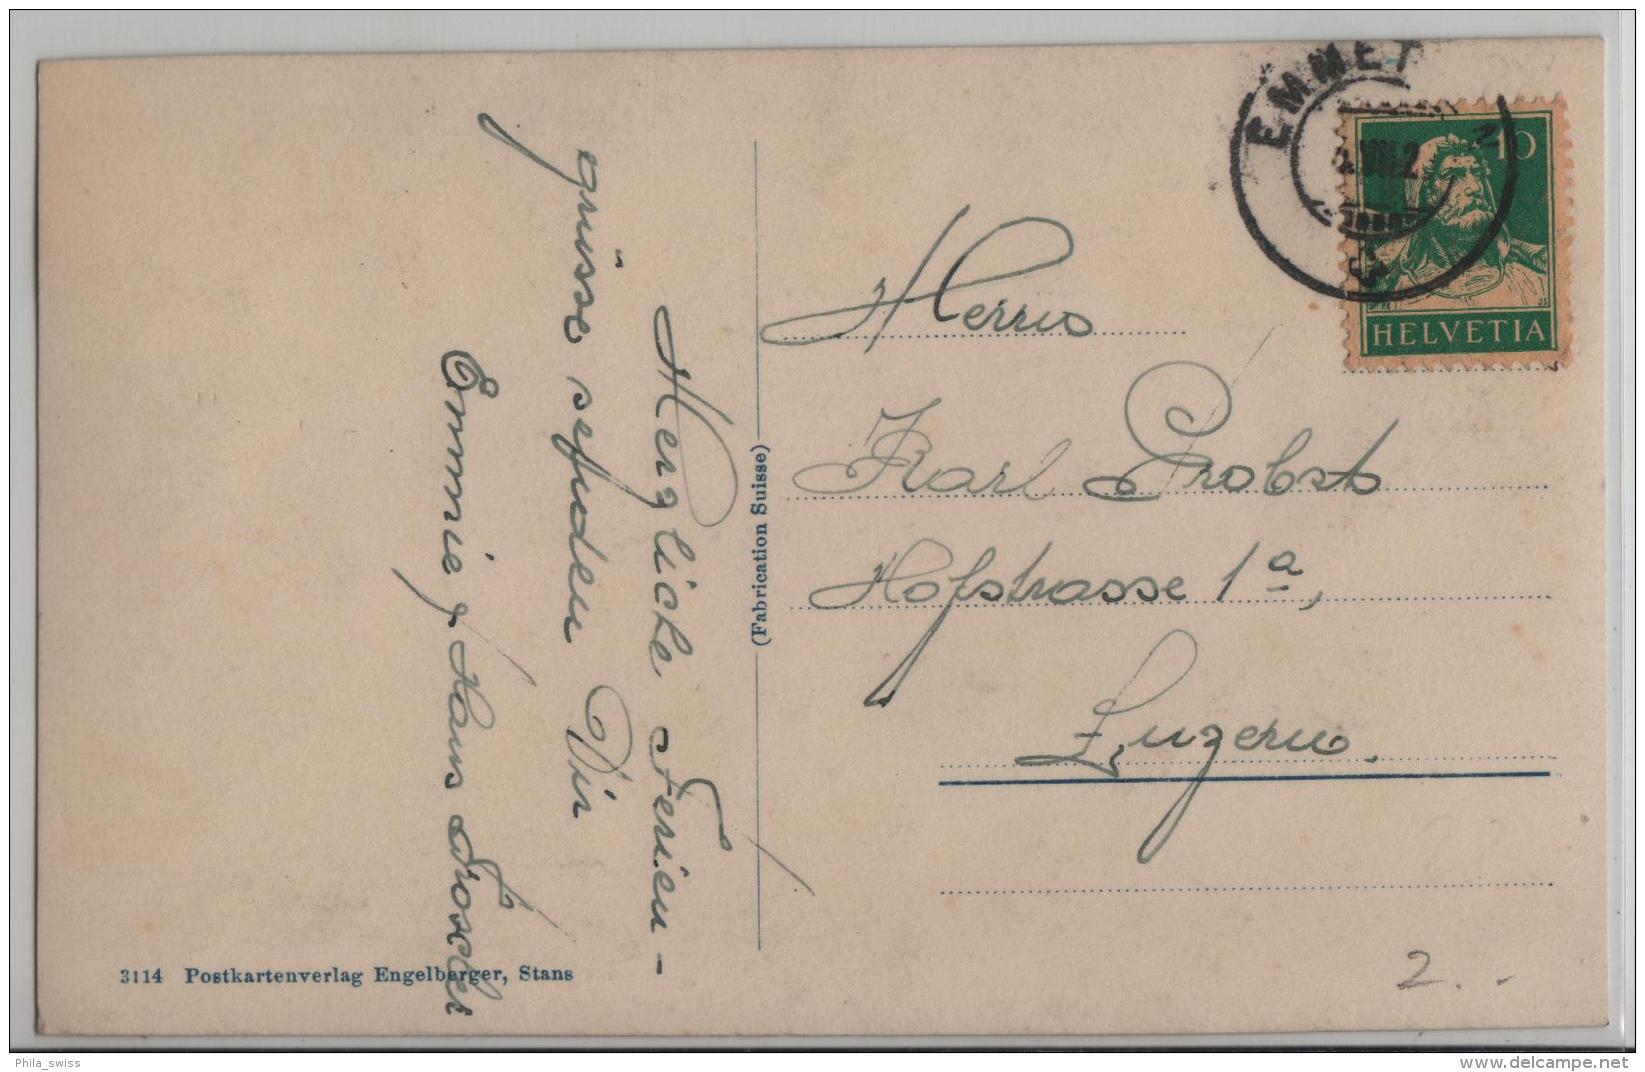 Herzliche Ferien-
grüsse senden Dir
Emmie & Hans
(Fabrication Suisse)
3114 Postkartenverlag Engelberger, Stans
EMMET
VIII.2
10
HELVETIA
Herrn
Karl Probst
Hofstrasse 1a,
Luzern.
2..
Phila_swiss